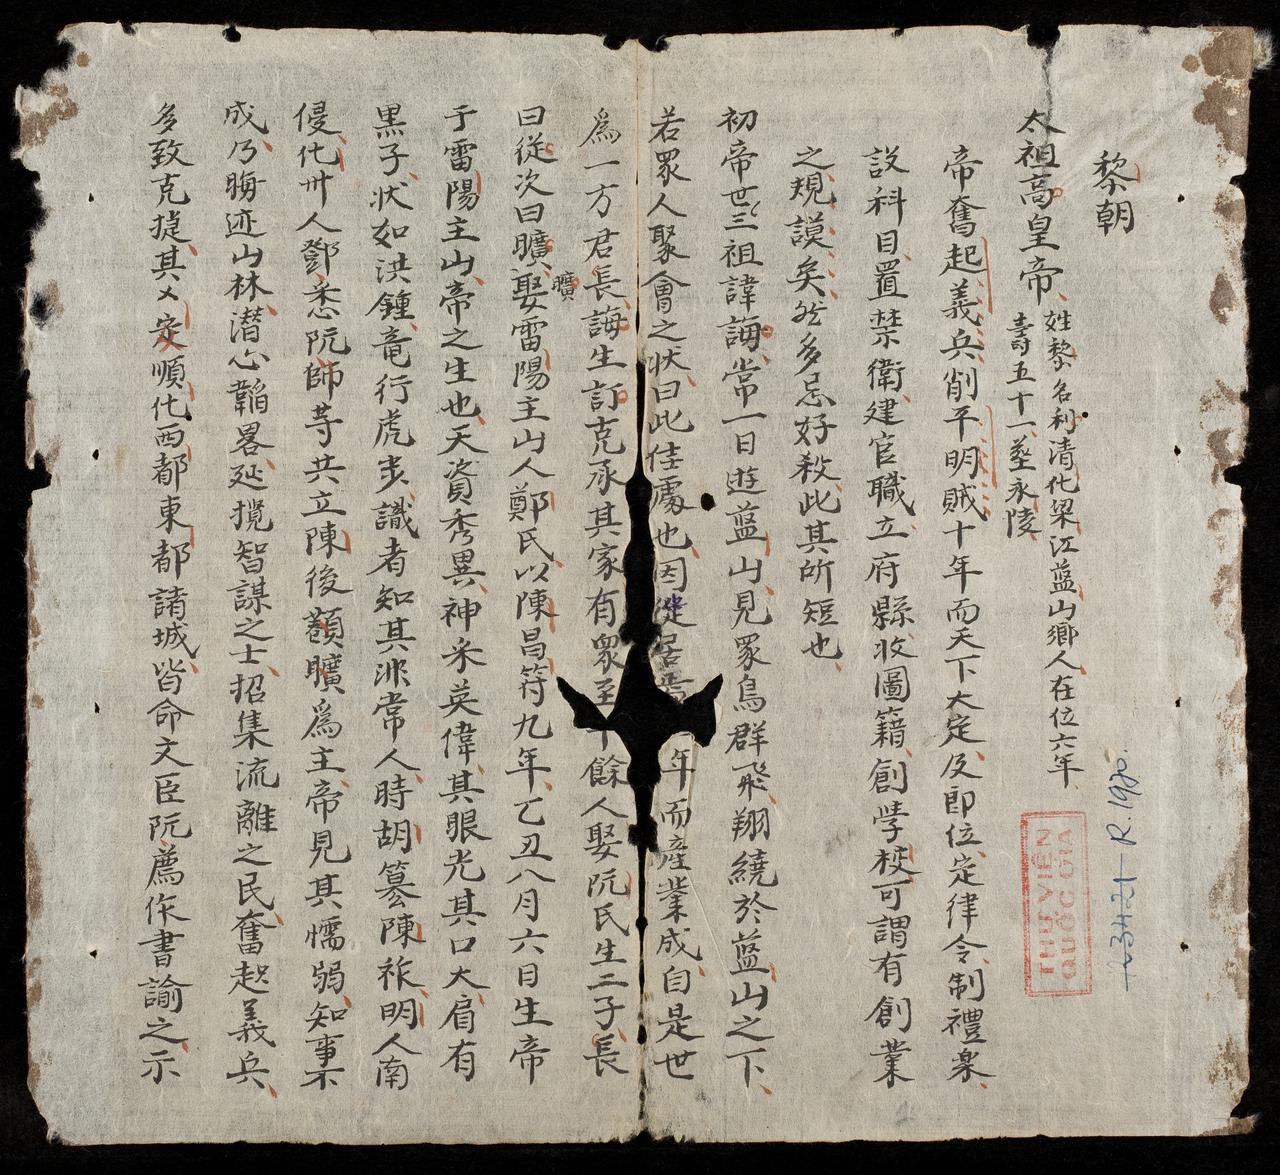 黎朝
太祖高皇帝
姓黎名利清化梁江藍山鄉人在位六年
壽五十一塟永陵
帝奮起義兵削平明賊十年而天下大定及即位定律令制禮樂
設科目置禁衛建官職立府縣收圖籍創學校可謂有創業
之規謨矣然多忌好殺此其所短也
初帝世三祖諱誨常一日遊藍山見眾鳥群飛翔繞於藍山之下
若眾人聚會之狀曰此佳處也因從居焉 年而產業成自是世
為一方君長誨生訂克承其家有眾至千餘人娶阮氏生二子長
曰從次曰曠娶雷陽主山人鄭氏以陳昌符九年乙丑八月六日生帝
曠
于雷陽主山帝之生也天資秀異神采英偉其眼光其口大眉有
黑子狀如洪鍾竜行虎步識者知其非常人時胡篡陳祚明人南
侵化州人鄧悉阮帥等共立陳後頟曠為主帝見其懦弱知事不
成乃晦迹山林潛心韜畧延攬智謀之士招集流離之民奮起義兵
多致克捷其乂安順化西都東都諸城皆命文臣阮廌作書諭之示
THƯ VIỆN
QUỐC GIA
R.1920